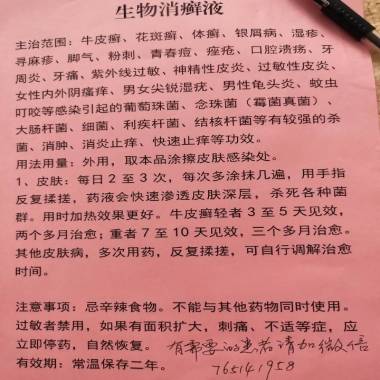 生物消癣液
主治范围：牛皮癣、花斑癣、体癣、银屑病、湿疹、
寻麻疹、脚气、粉刺、青春痘、痤疮、口腔溃疡、牙
周炎、牙痛、紫外线过敏、神精性皮炎、过敏性皮炎、
女性内外阴瘙痒、男女尖锐湿疣、男性龟头炎、蚊虫
叮咬等感染引起的葡萄珠菌、念珠菌（霉菌真菌）、
大肠杆菌、细菌、利疾杆菌、结核杆菌等有较强的杀
菌、消肿、消炎止痒、快速止痒等功效。
用法用量：外用，取本品涂擦皮肤感染处。
1、皮肤：每日 2 至 3 次，每次多涂抹几遍，用手指
反复揉搓，药液会快速渗透皮肤深层，杀死各种菌
群。用时加热效果更好。牛皮癣轻者 3 至 5 天见效，
两个多月治愈；重者 7 至 10 天见效，三个多月治愈。
其他皮肤病，多次用药，反复揉搓，可自行调解治愈
时间。
注意事项：忌辛辣食物。不能与其他药物同时使用。
过敏者禁用，如果有面积扩大，刺痛、不适等症，应
立即停药，自然恢复。 有需要的患者请加微信
有效期：常温保存二年。 765141958